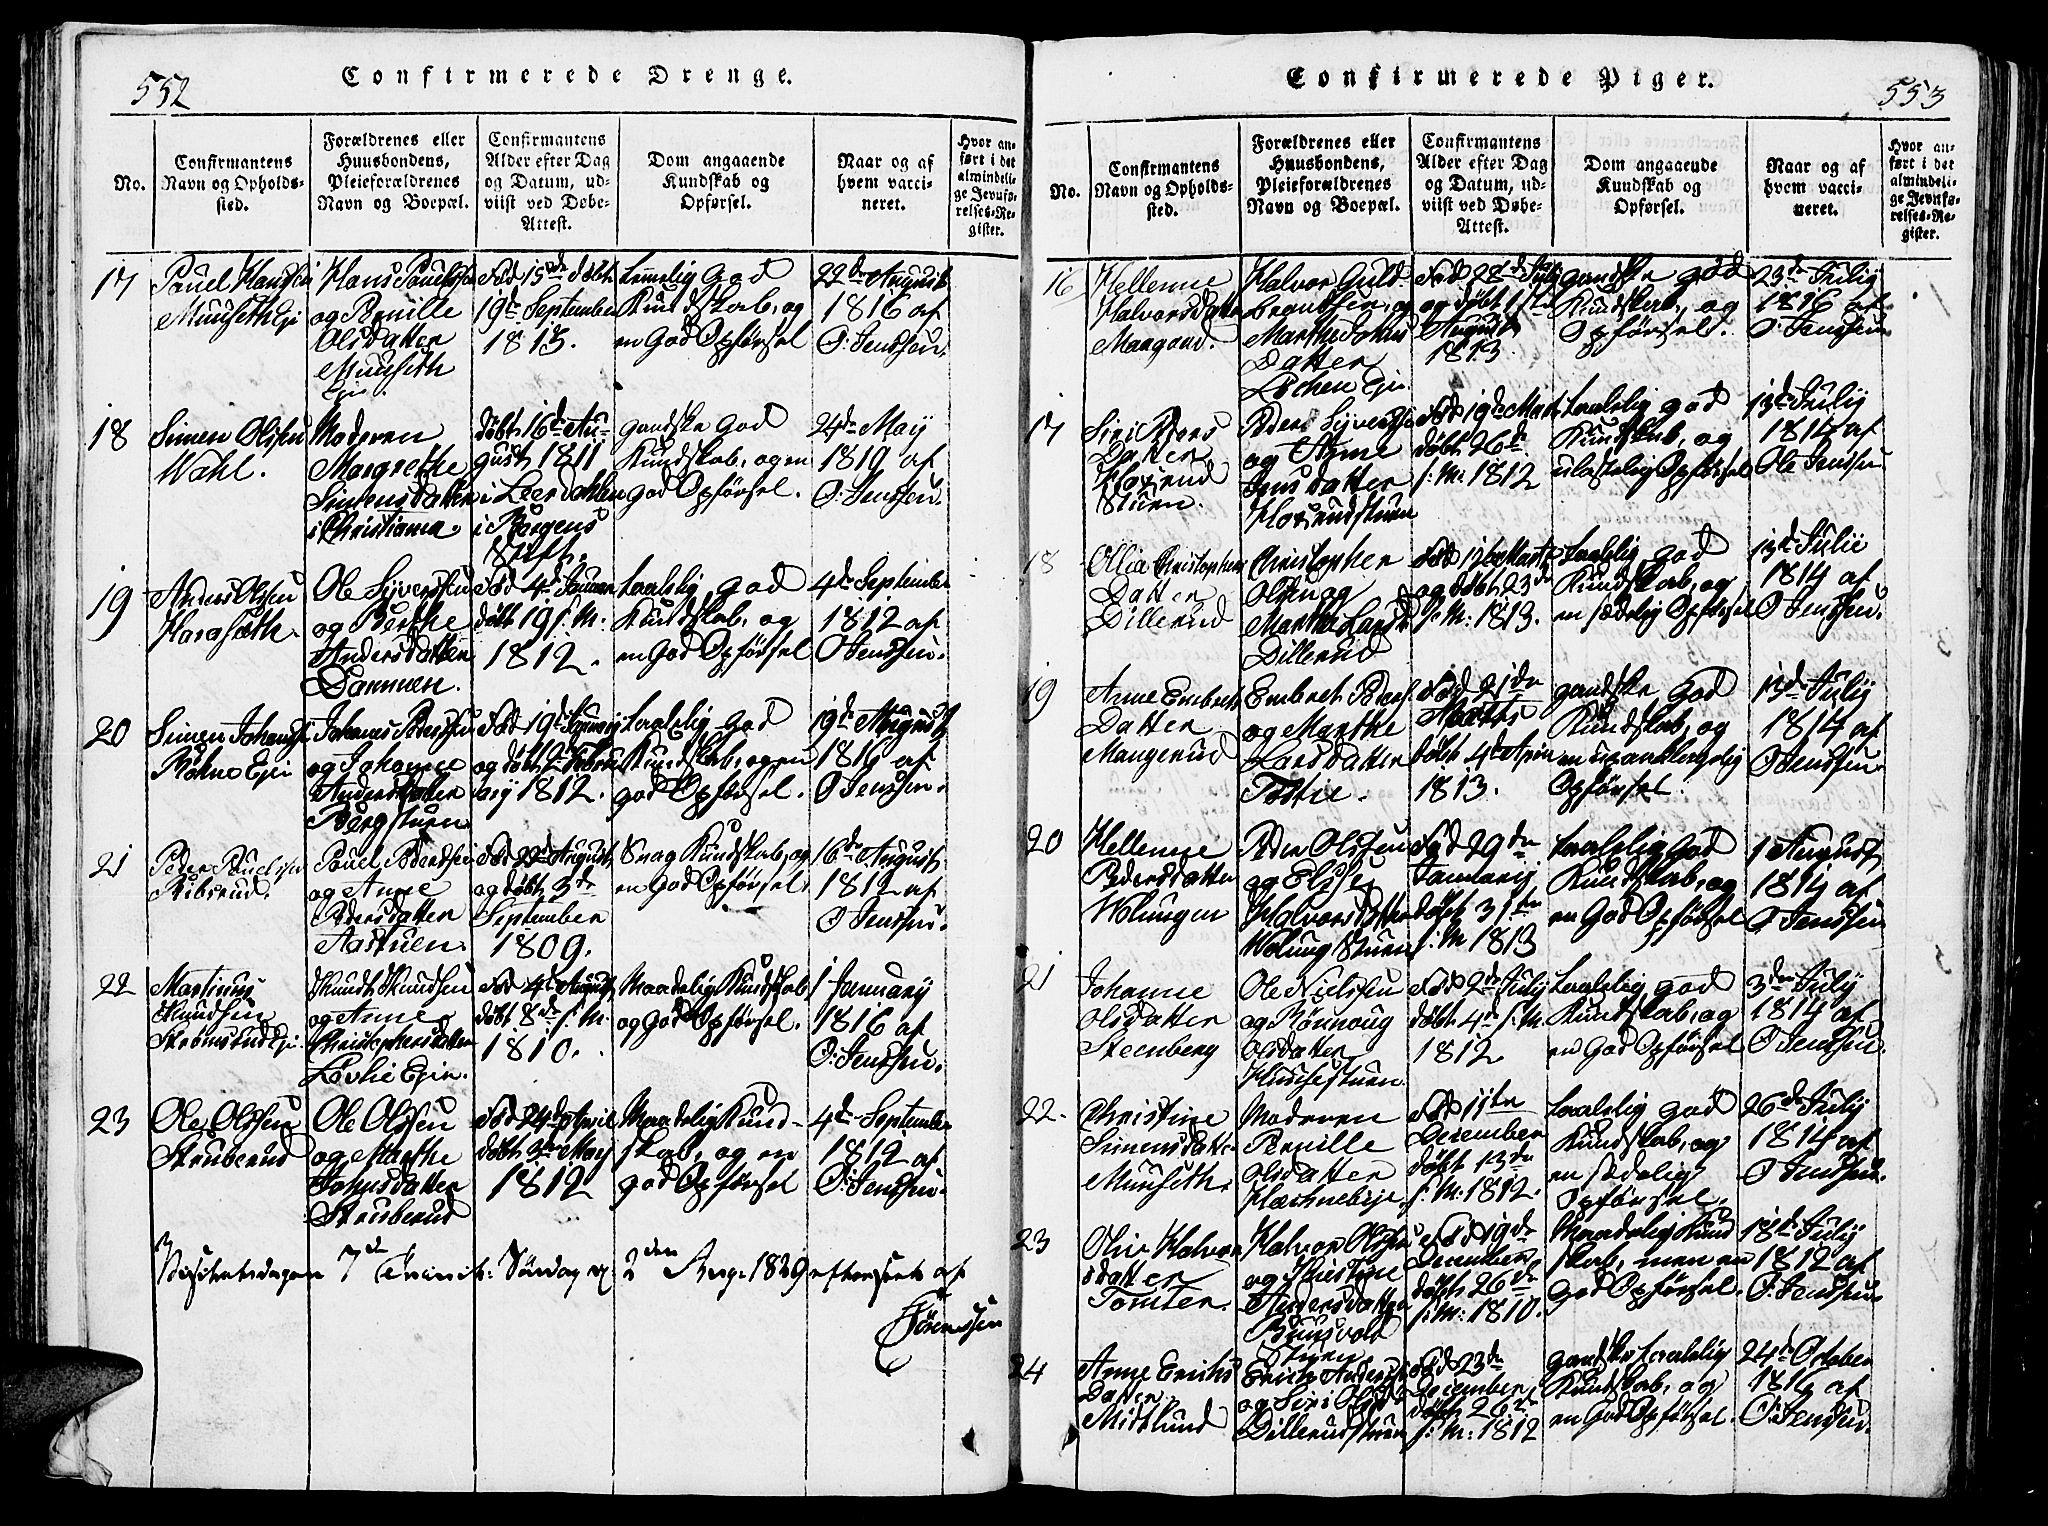 552
Confirmerede Drenge.
No.
Confirmantens
Navn og Opholds-
sted.
Forældrenes eller
Huusbondens,
Pleieforældrenes
Navn og Boepæl.
Confirmantens
Alder efter Dag
og Datum, ud-
viist ved Døbe-
Attest.
Dom angaaende
Kundskab og
Opførsel.
Naar og af
hvem vacci-
neret.
Hvor an-
ført i det
almindeli-
ge Jevnfø-
relses-Re-
gister.
17
Povel Hansen
Muuseth Eje
Hans Povelsen
og Pernille
Olsdatter
Muuseth
Eje.
Fød 15de døbt
19de September
1813.
temmelig god
Kundskab, og
en god Opførsel
22de August
1816 af
O: Jenssen.
18
Simen Olssen
Wahl.
Moderen
Margrethe
Simensdatter
i Christiania.
døbt 16de Au-
gust 1811
i Leerdahlen
i Bergens
Stift.
gandske god
Kundskab, og en
god Opførsel.
24de May
1819 af
O: Jenssen.
19
Anders Olssen
Haraseth.
Ole Syverssen
og Berthe
Andersdatter
Dammen.
Fød 4de Januar
døbt 19 s. M.
1812.
taalelig god
Kundskab, og
en god Opførsel
4de September
1812 af
O Jenssen.
20
Simen Johanss
Røhne Eje
Johannes Pederssen
og Johanne
Andersdatter
Bergstuen
Fød 19de Januarij
og døbt 2de Febru
arij 1812.
taalelig god
Kundskab, og en
god Opførsel.
19de August
1816 af
O Jenssen.
21
Peder Povelsen
Ribsrud.
Povel Pederssen
og Anne
Pedersdatter
Aastuen.
Fød 22de August
og døbt 3de
September
1809.
Svag Kundskab, og
en god Opførsel.
16de August
1812 af
O: Jenssen.
22
Martinus
Knudsen
Strømsrud Eje.
Knudt Knudsen
og Anne
Christophersdatter
Løvlie Ejer.
Fød 4de August
døbt 8de s. M.
1810.
Maadelig Kundskab
og god Opførsel.
1 January
1816 af
O: Jenssen.
23
Ole Olssen
Struberud
Ole Olssen
og Marthe
Johnsdatter
Struberud
Fød 24de April
døbt 3de May
1812
Maadelig Kund-
skab, og en
god Opførsel
4de September
1812 af
O: Jenssen.
Visitatsdagen 7de Trinit: Søndag 2den Aug. 1829 efterseet af
Sörenssen
553
Confirmerede Piger.
No.
Confirmantens
Navn og Opholds-
sted.
Forældrenes eller
Huusbondens,
Pleieforældrenes
Navn og Boepæl.
Confirmantens
Alder efter Dag
og Datum, ud-
viist ved Døbe-
Attest.
Dom angaaende
Kundskab og
Opførsel.
Naar og af
hvem vacci-
neret.
Hvor an-
ført i det
almindeli-
ge Jevnfø-
relses-Re-
gister.
16
Hellenne
Halvorsdatter
Mangaard.
Halvor Guld-
brandsen, og
Marthe Johns
Datter
Lochen Eje
Fød 28de July
og døbt 1ste
August
1813.
gandske god
Kundskab, og
Opførsel.
23de Julij
1816 af
O: Jenssen
17
Siri Peders
Datter
Kloxrud
Stuen.
Peder Syverss
og Anne
Jensdatter
Kloxrudstuen
Fød 19de Marts
døbt 26de
s. M: 1812
taalelig god
Kundskab, og
ulastelig Opførsel
13de Julij
1814 af
Ole Jenssen.
18
Ollia Christophers
Datter
Dillerud
Christopher
Olsen og
Marthe Lars D.
Dillerud
Fød 12te Marts
og døbt 23de
s. M: 1813.
taalelig god
Kundskab, og
en sædelig Opførsel
13de Julii
1814 af
O Jenssen.
19
Anne Embrets
Datter
Mangerud
Embret Pederss
og Marthe
Larsdatter
Tostie.
Fød 21de
Marts
døbt 4de Apr
1813.
gandske god
Kundskab, og
en upaaklagelig
Opførsel.
13de Julij
1814 af
O Jenssen.
20
Hellenne
Pedersdatter
Wolungen
Peder Olssen
og Elise
Halvorsdatter
Wolung Stuen
Fød 29de
Januarij
døbt 31te
s: M 1813
taalelig god
Kundskab, og
en god Opførsel
1 August
1814 af
O Jenssen
21
Johanne
Olsdatter
Steenberg
Ole Nielssen
og Rønnoug
Olsdatter
Fød 2de Julij
døbt 4de s. M.
1812
taalelig god
Kundskab, og
en god Opførsel
3de July
1814 af
O Jenssen.
22
Christine
Simensdatter
Muuseth.
Moderen
Pernille
Olsdatter
Fød 11te
December
døbt 13de
s: M: 1812.
taalelig god
Kundskab, og
en sædelig
Opførsel.
26de Julij
1814 af
O Jenssen.
23
Olive Halvor
sdatter
Tomter.
Halvor Olssen
og Kiestine
Andersdatter
Buusvold
Stuen
Fød 19de
December
døbt 26de
s: M: 1810.
Maadelig Kund
skab, men en
god Opførsel.
18de Julij
1812 af
O: Jenssen.
24
Anne Erichs
Datter
Midtlund
Erich Anderss
og Siri Olsd.
Dillerudstuen
Fød 23de
December
døbt 26de
s: M: 1812
gandske taalelig
Kundskab, og
en god Opførsel.
24de October
1816 af
O: Jenssen.